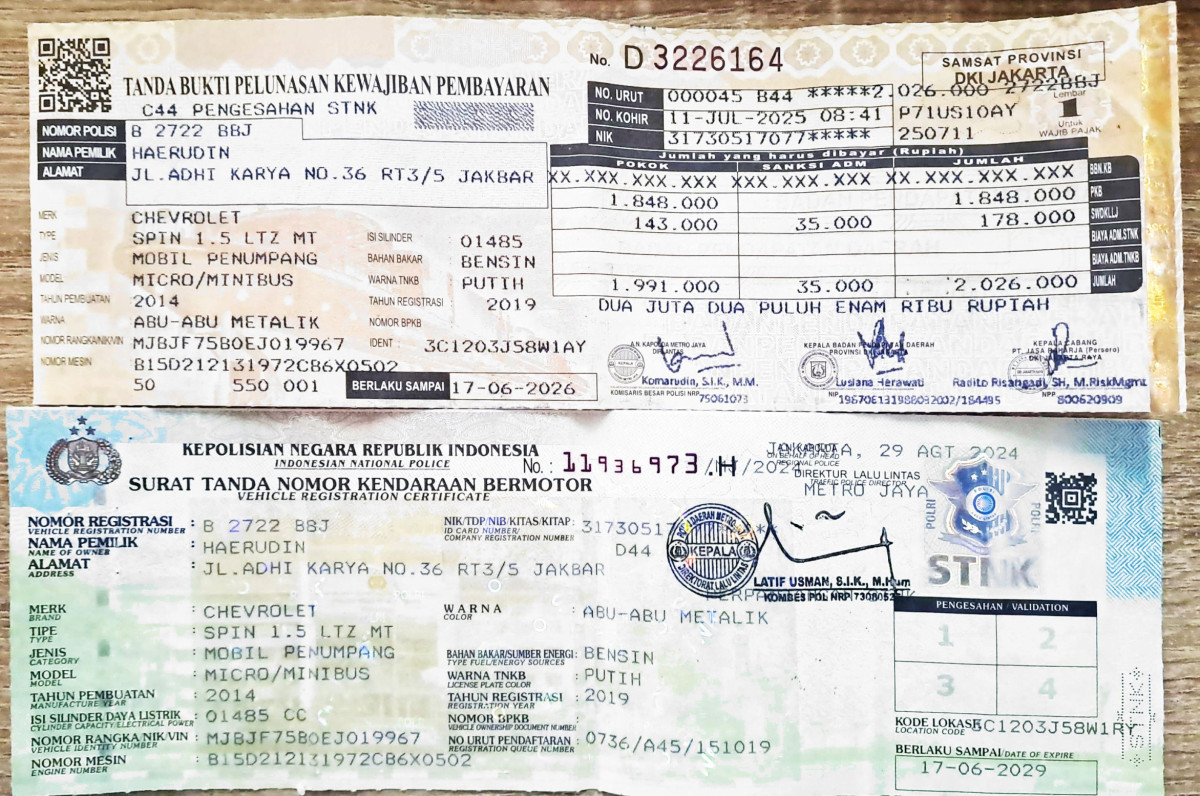 No. D 3226164
SAMSAT PROVINSI
DKI JAKARTA
TANDA BUKTI PELUNASAN KEWAJIBAN PEMBAYARAN
C44 PENGESAHAN STNK
NO. URUT 000045 B44 *****2.026.000 2722BBJ
NO. KOHIR 11-JUL-2025 08:41 P71US10AY
NIK 31730517077***** 250711
Lembar
1
Untuk
WAJIB PAJAK
NOMOR POLISI B 2722 BBJ
NAMA PEMILIK HAERUDIN
ALAMAT JL.ADHI KARYA NO.36 RT3/5 JAKBAR
Jumlah yang harus dibayar (Rupiah)
POKOK SANKSI ADM JUMLAH
XX.XXX.XXX.XXX XX.XXX.XXX.XXX XX.XXX.XXX.XXX BBN.KB
1.848.000 1.848.000 PKB
143.000 35.000 178.000 SWDKLLJ
BIAYA ADM.STNK
BIAYA ADM.TNKB
1.991.000 35.000 2.026.000 JUMLAH
DUA JUTA DUA PULUH ENAM RIBU RUPIAH
MERK CHEVROLET
TYPE SPIN 1.5 LTZ MT ISI SILINDER : 01485
JENIS MOBIL PENUMPANG BAHAN BAKAR : BENSIN
MODEL MICRO/MINIBUS WARNA TNKB : PUTIH
TAHUN PEMBUATAN 2014 TAHUN REGISTRASI 2019
WARNA ABU-ABU METALIK NOMOR BPKB
NOMOR RANGKA/NIK/VIN MJBJF75B0EJ019967 IDENT : 3C1203J58W1AY
NOMOR MESIN B15D212131972CB6X0502
50 550 001 BERLAKU SAMPAI 17-06-2026
A.N. KAPOLDA METRO JAYA
DIRLANTAS
Komarudin, S.I.K., M.M.
KOMISARIS BESAR POLISI NRP 75061073
KEPALA BADAN PENDAPATAN DAERAH
PROVINSI DKI JAKARTA
Lusiana Herawati
NIP 196706131988032002/184495
KEPALA CABANG
PT. JASA RAHARJA (Persero)
DKI JAKARTA RAYA
Radito Risangadi, SH, M.RiskMgmt
NPP 800620909
KEPOLISIAN NEGARA REPUBLIK INDONESIA
INDONESIAN NATIONAL POLICE
No. : 11936973 /H /202
SURAT TANDA NOMOR KENDARAAN BERMOTOR
VEHICLE REGISTRATION CERTIFICATE
JAKARTA, 29 AGT 2024
ON BEHALF OF HEAD
REGIONAL POLICE
DIREKTUR LALU LINTAS
TRAFFIC POLICE DIRECTOR
METRO JAYA
NOMOR REGISTRASI : B 2722 BBJ
VEHICLE REGISTRATION NUMBER
NIK/TDP/NIB/KITAS/KITAP : 3173051
ID CARD NUMBER/
COMPANY REGISTRATION NUMBER
D44
NAMA PEMILIK : HAERUDIN
NAME OF OWNER
ALAMAT : JL.ADHI KARYA NO.36 RT3/5 JAKBAR
ADDRESS
KEPALA
DIREKTORAT LALU LINTAS
LATIF USMAN, S.I.K., M.Hum
KOMBES POL NRP
POLRI
POLRI
STNK
MERK : CHEVROLET
BRAND
WARNA : ABU-ABU METALIK
COLOR
TIPE : SPIN 1.5 LTZ MT
TYPE
JENIS : MOBIL PENUMPANG
CATEGORY
BAHAN BAKAR/SUMBER ENERGI : BENSIN
TYPE FUEL/ENERGY SOURCES
MODEL : MICRO/MINIBUS
MODEL
WARNA TNKB : PUTIH
LICENSE PLATE COLOR
TAHUN PEMBUATAN : 2014
MANUFACTURE YEAR
TAHUN REGISTRASI : 2019
REGISTRATION YEAR
ISI SILINDER/DAYA LISTRIK : 01485 CC
CYLINDER CAPACITY/ELECTRICAL POWER
NOMOR BPKB :
VEHICLE OWNERSHIP DOCUMENT NUMBER
NOMOR RANGKA/NIK/VIN : MJBJF75B0EJ019967
VEHICLE IDENTITY NUMBER
NO URUT PENDAFTARAN : 0736/A45/151019
REGISTRATION QUEUE NUMBER
NOMOR MESIN : B15D212131972CB6X0502
ENGINE NUMBER
PENGESAHAN / VALIDATION
1 2
3 4
KODE LOKASI 3C1203J58W1RY
LOCATION CODE
BERLAKU SAMPAI/DATE OF EXPIRE
17-06-2029
STNK